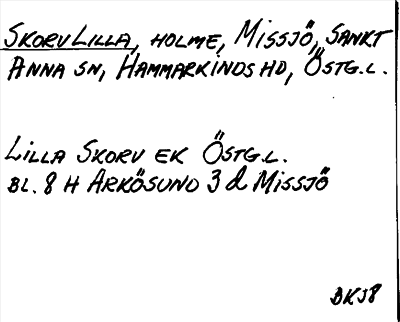 SKORV LILLA, HOLME, MISSJÖ, SANKT
ANNA SN, HAMMARKINDS HD, ÖSTG.L.
LILLA SKORV EK ÖSTG.L.
BL. 8 H ARKÖSUND 3 d MISSJÖ
BKJ8